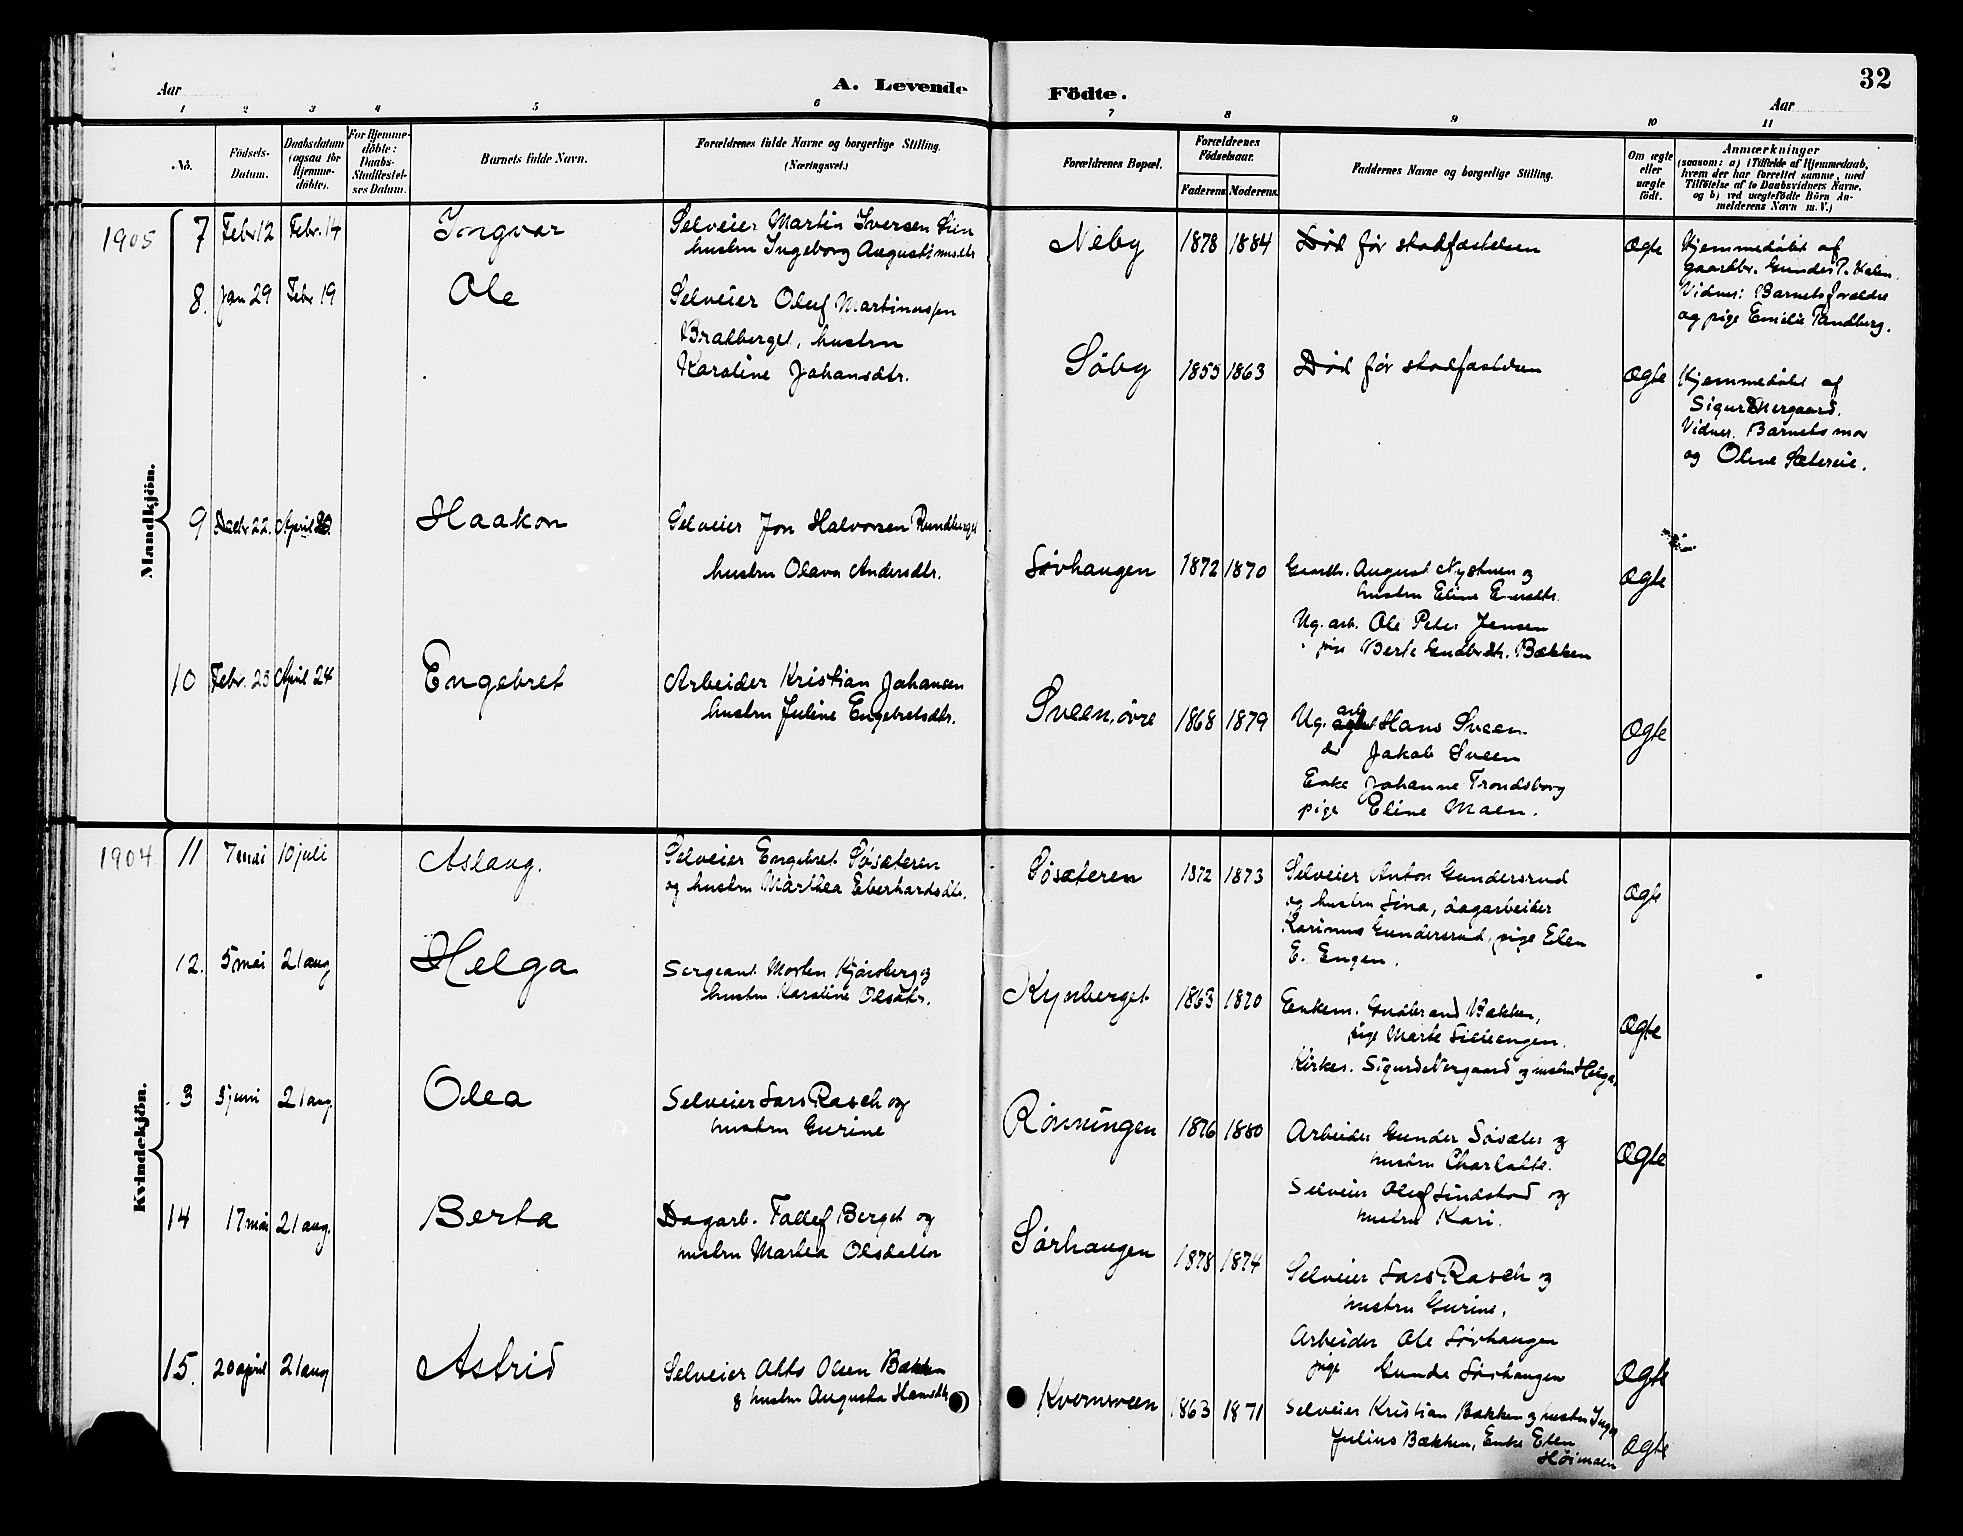 32
A. Levende Födte.
Aar
Aar
1 2 3 4 5 6 7 8 9 10 11
No.
Födsels-Datum.
Daabsdatum (ogsaa for Hjemme-döbte).
For Hjemme-döbte: Daabs-Stadfæstel-ses Datum.
Barnets fulde Navn.
Forældrenes fulde Navne og borgerlige Stilling.
(Næringsvei.)
Forældrenes Bopæl.
Forældrenes Födselsaar.
Faderens Moderens
Faddernes Navne og borgerlige Stilling.
Om ægte eller uægte födt.
Anmærkninger
(saasom: a) i Tilfælde af Hjemmedaab, hvem der har forrettet samme, med Tilföielse af to Daabsvidners Navne, og b) ved uægtefödte Börn An-melderens Navn m. V.)
Mandkjön.
1905 7 Febr 12 Febr. 14 Ingvar
Selveier Martin Iversen
hustru Ingeborg Augustinusdtr
Neby 1878 1884 Død før stadfæstelsen Ægte
Hjemmedøbt af
gaardbr. Gunder P.
Vidner: Barnets forældre
og pige Emelie
8. Jan 29 Febr 19 Ole
Selveier Oluf Martinussen
Bratberget, hustru
Karoline Johansdtr.
Søby 1855 1863 Død før stadfæstelsen Ægte
Hjemmedøbt af
Sigurd Nergaard.
Vidner. Barnets mor
og Oline Sætereie.
9 Decbr 22. April 20. Haakon
Selveier Jon Halvorsen Rundberget
hustru Olava Andersdtr.
Sørhaugen 1872 1870
Gaardbr. August Nystuen og
hustru Eline
Ug. arb. Ole Peter Jensen
" pige Berte Gudbrdtr. Bækken
Ægte
10 Febr. 25 April 24 Engebret
Arbeider Kristian Johansen
hustru Juline Engebretsdtr.
Sveen, øvre 1868 1879
Ug. arb Hans Sveen
do Jakob Sveen
Enke Johanne Trondsborg
pige Eline Moen.
Ægte
Kvindekjön.
1904 11 7 mai 10 juli Aslaug.
Selveier Engebret Søsæteren
og hustru Marthea Eberhardsdtr.
Søsæteren 1872 1873
Selveier Anton Gundersrud
og hustru Lina, dagarbeider
Karinus Gundersrud, pige Elen
E. Engen.
Ægte
12. 5 mai 21 aug Helga
Sergeant Morten Kjølsberg og
hustru Karoline Olsdtr.
Kynberget 1863 1870
Enkem. Gudbrand Bækken,
pige Marte Lilleengen.
Kirkes. Sigurd Nergaard og hustru Helga.
Ægte
13 5 juni 21 aug Olea
Selveier Lars Rasch og
hustru Gurine
Rønningen 1876 1880
Arbeider Gunder Søsæter og
hustru Charlotte.
Selveier Oluf Lindstad og
hustru Kari.
Ægte
14 17 mai 21 aug. Berta
Dagarb. Tollef Berget og
hustru Martea Olsdatter
Sørhaugen 1878 1874
Selveier Lars Rasch og
hustru Gurine,
Arbeider Ole Sørhaugen
pige Gunda Sørhaugen
Ægte
15. 20 april 21 aug Astrid
Selveier Otto Olsen Bækken
& hustru Augusta Hansdtr
Kvernsveen 1863 1871
Selveier Kristian Bækken og hustru Inga
Julius Bækken, Enke Elen
Høimoen
Ægte